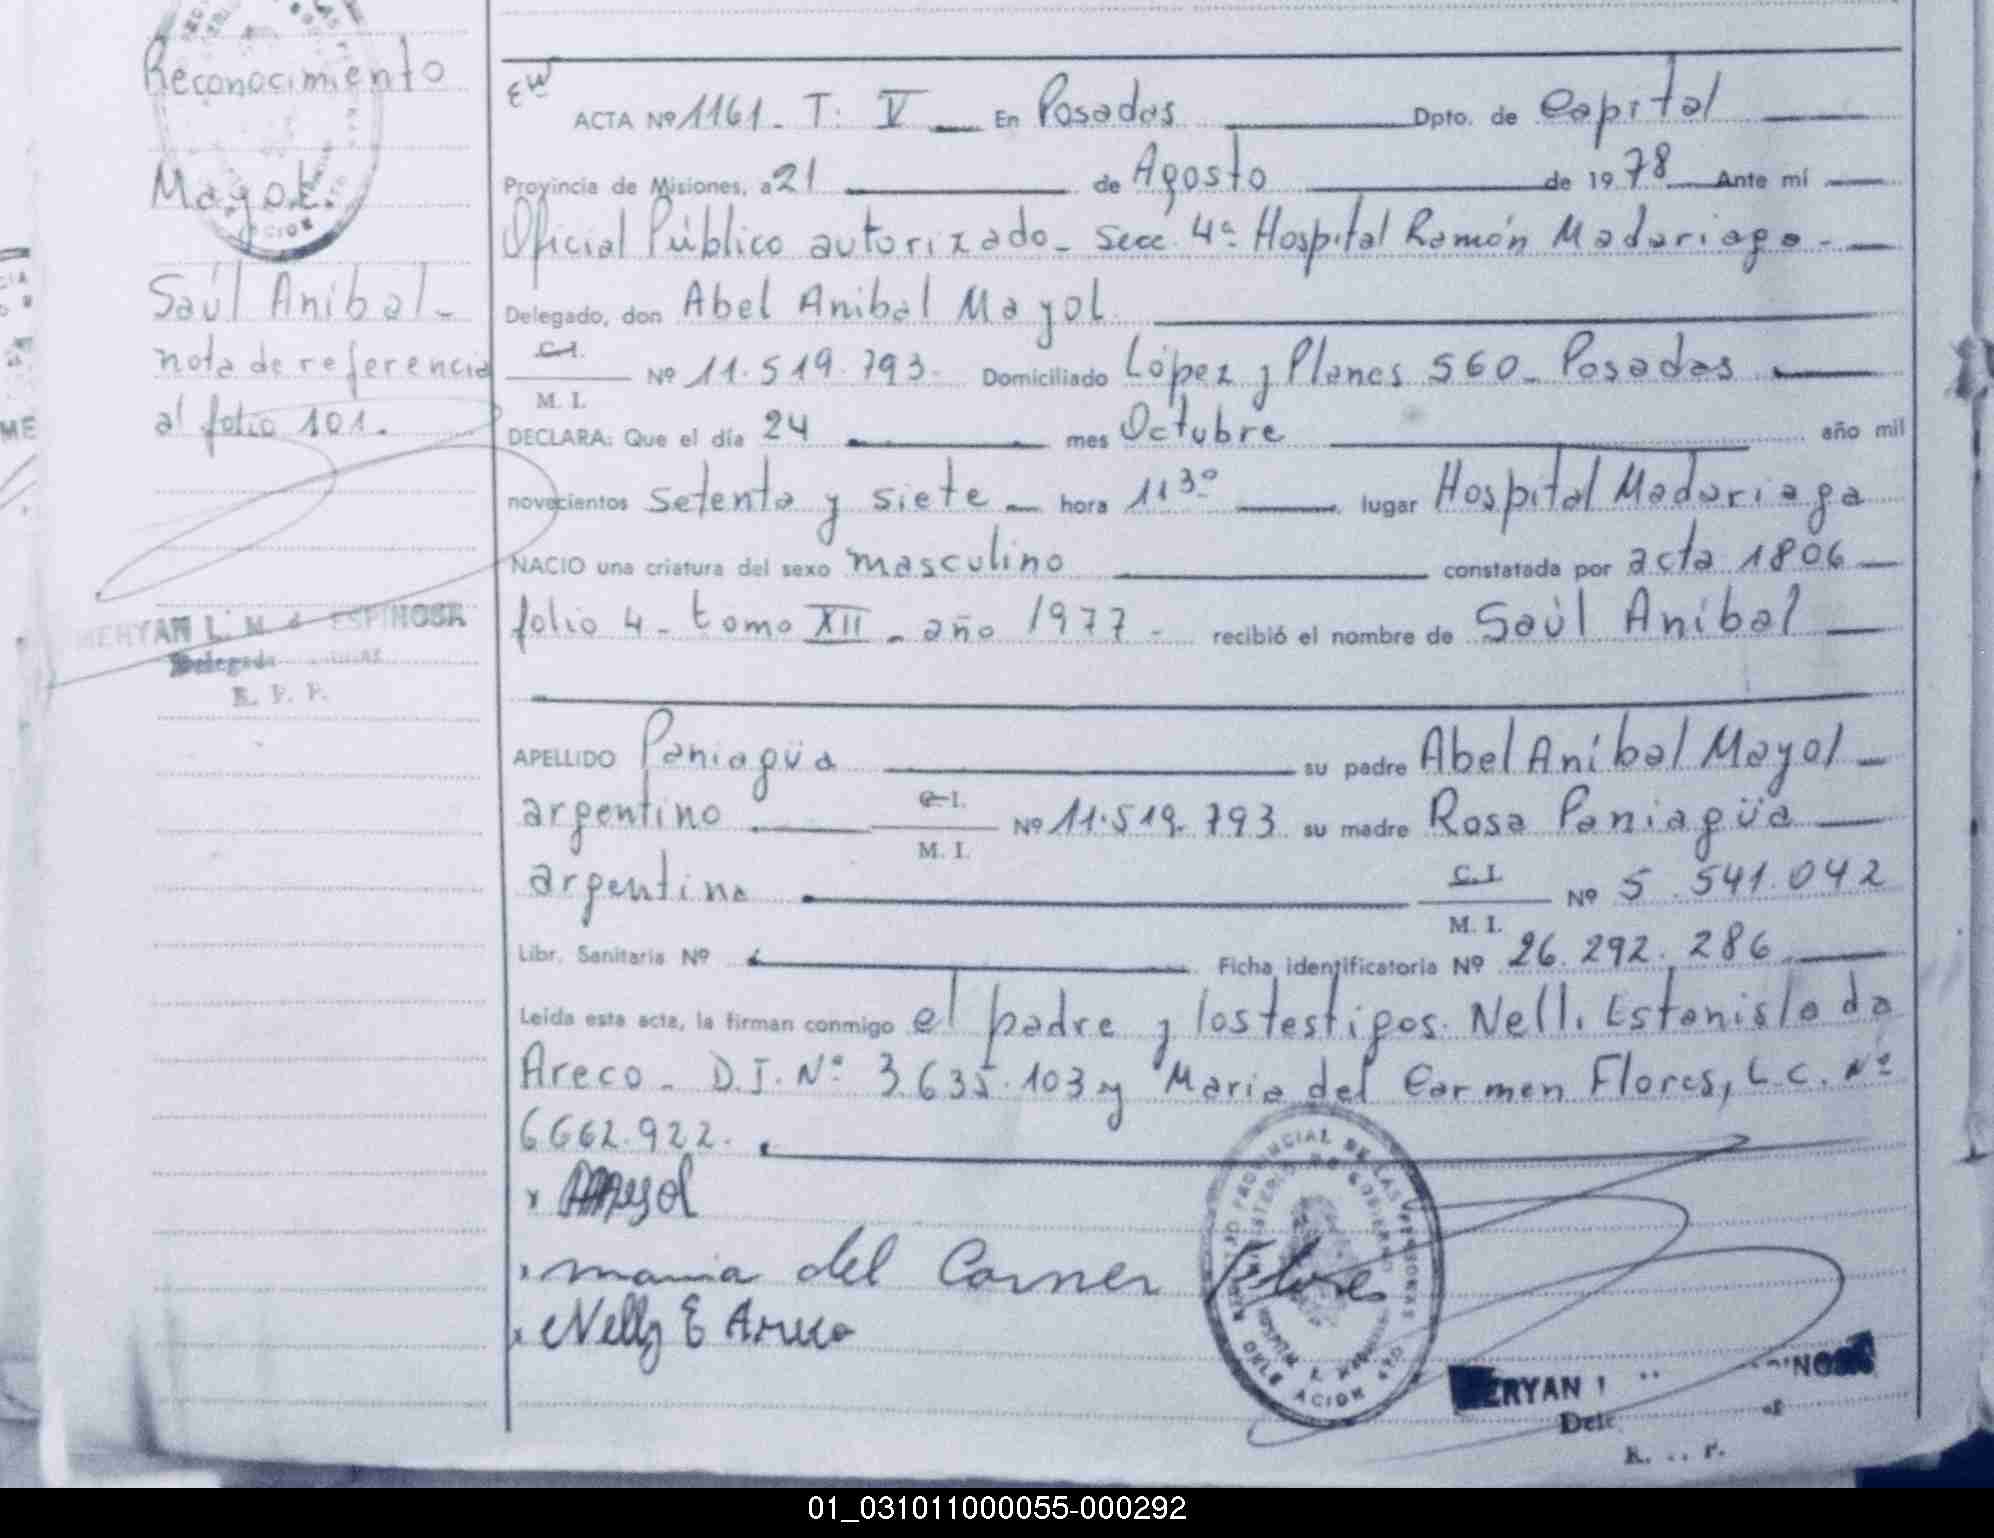 Reconocimiento
Mayol
Saúl Aníbal -
nota de referencia
al folio 101.
ESPINOSA
Delegada
R. P. P.
ACTA Nº 1161 - T: V En Posadas Dpto. de Capital
Provincia de Misiones, a 21 de Agosto de 1978 Ante mí
Oficial Público autorizado - Secc. 4ª Hospital Ramón Madariaga -
Delegado, don Abel Anibal Mayol
C.I.
M. I. Nº 11.519.793 - Domiciliado López y Planes 560 - Posadas
DECLARA: Que el día 24 mes Octubre año mil
novecientos setenta y siete - hora 11 30 lugar Hospital Madariaga
NACIO una criatura del sexo masculino constatada por acta 1806
folio 4 - tomo XII - año 1977 - recibió el nombre de Saúl Aníbal
APELLIDO Paniagüa su padre Abel Aníbal Mayol
argentino C.I. M. I. Nº 11.519.793 su madre Rosa Paniagüa
argentina C.I. M. I. Nº 5.541.042
Libr. Sanitaria Nº Ficha identificatoria Nº 26.292.286
Leída esta acta, la firman conmigo el padre y los testigos. Nelli Estanislada
Areco - D.I. Nº 3.635.103 y Maria del Carmen Flores, L.C. Nº
6662.922.
maria del Carmen Flores
Nelly E Areco
ERYAN
01_031011000055-000292